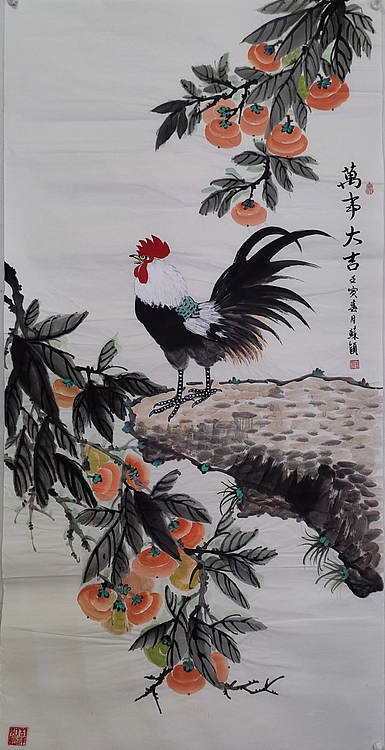 萬事大吉
壬寅春月蘇穎